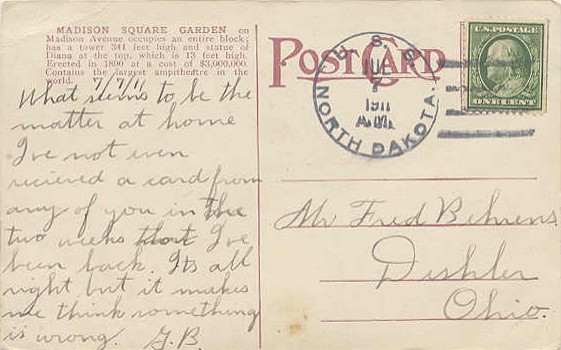 MADISON SQUARE GARDEN on
Madison Avenue occupies an entire block;
has a tower 341 feet high and statue of
Diana at the top, which is 13 feet high.
Erected in 1890 at a cost of $3,000,000.
Contains the largest ampitheatre in the
world.
7/7/11
What seems to be the
matter at home
I've not even
recieved a card from
any of you in the
two weeks that I've
been back. Its all
right but it makes
me think something
is wrong. G.B.
POST CARD
U. S. S.
1911
A.M.
NORTH DAKOTA.
U.S. POSTAGE
ONE CENT
Mr Fred Behrens
Deshler
Ohio.